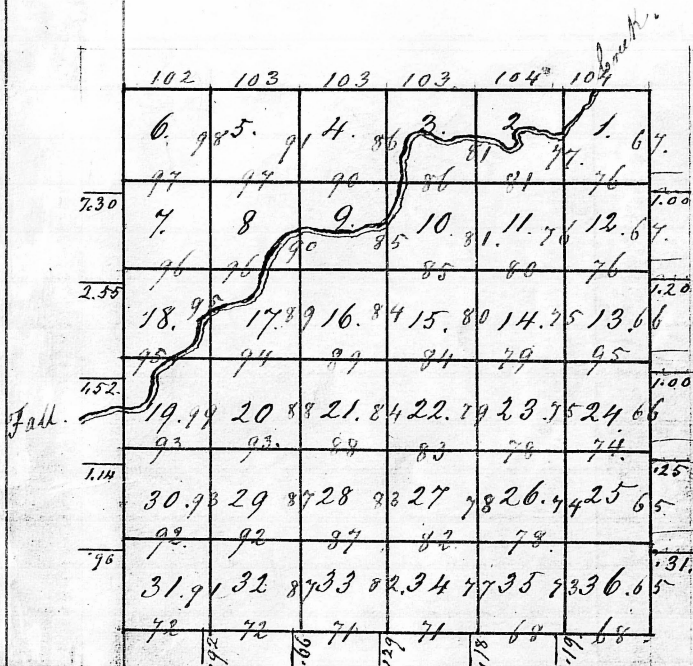 Creek.
102 103 103 103. 104 104
6. 98 5. 91 4. 86 3. 81 2 77. 1. 67.
97 97 90 86 81 76
7.30 1.00
7. 8 9. 85 10. 81. 11. 76 12. 67.
90
96 96 85 80 76
2.55 1.20
18. 17. 89 16. 84 15. 80 14. 75 13. 66
95 94 89 84 79 95
1.52 1.00
Fall. 19. 99 20 88 21. 84 22. 79 23. 75 24 66
93 93. 88 83 78 74.
1.14 .25
30. 93 29 87 28 83 27 78 26. 74 25 65
92. 92 87 82. 78.
.96 .31
31. 91 32 87 33 82. 34 77 35 73 36. 65
72 72 71 71 68 68
.92 .66 .29 .18 .19